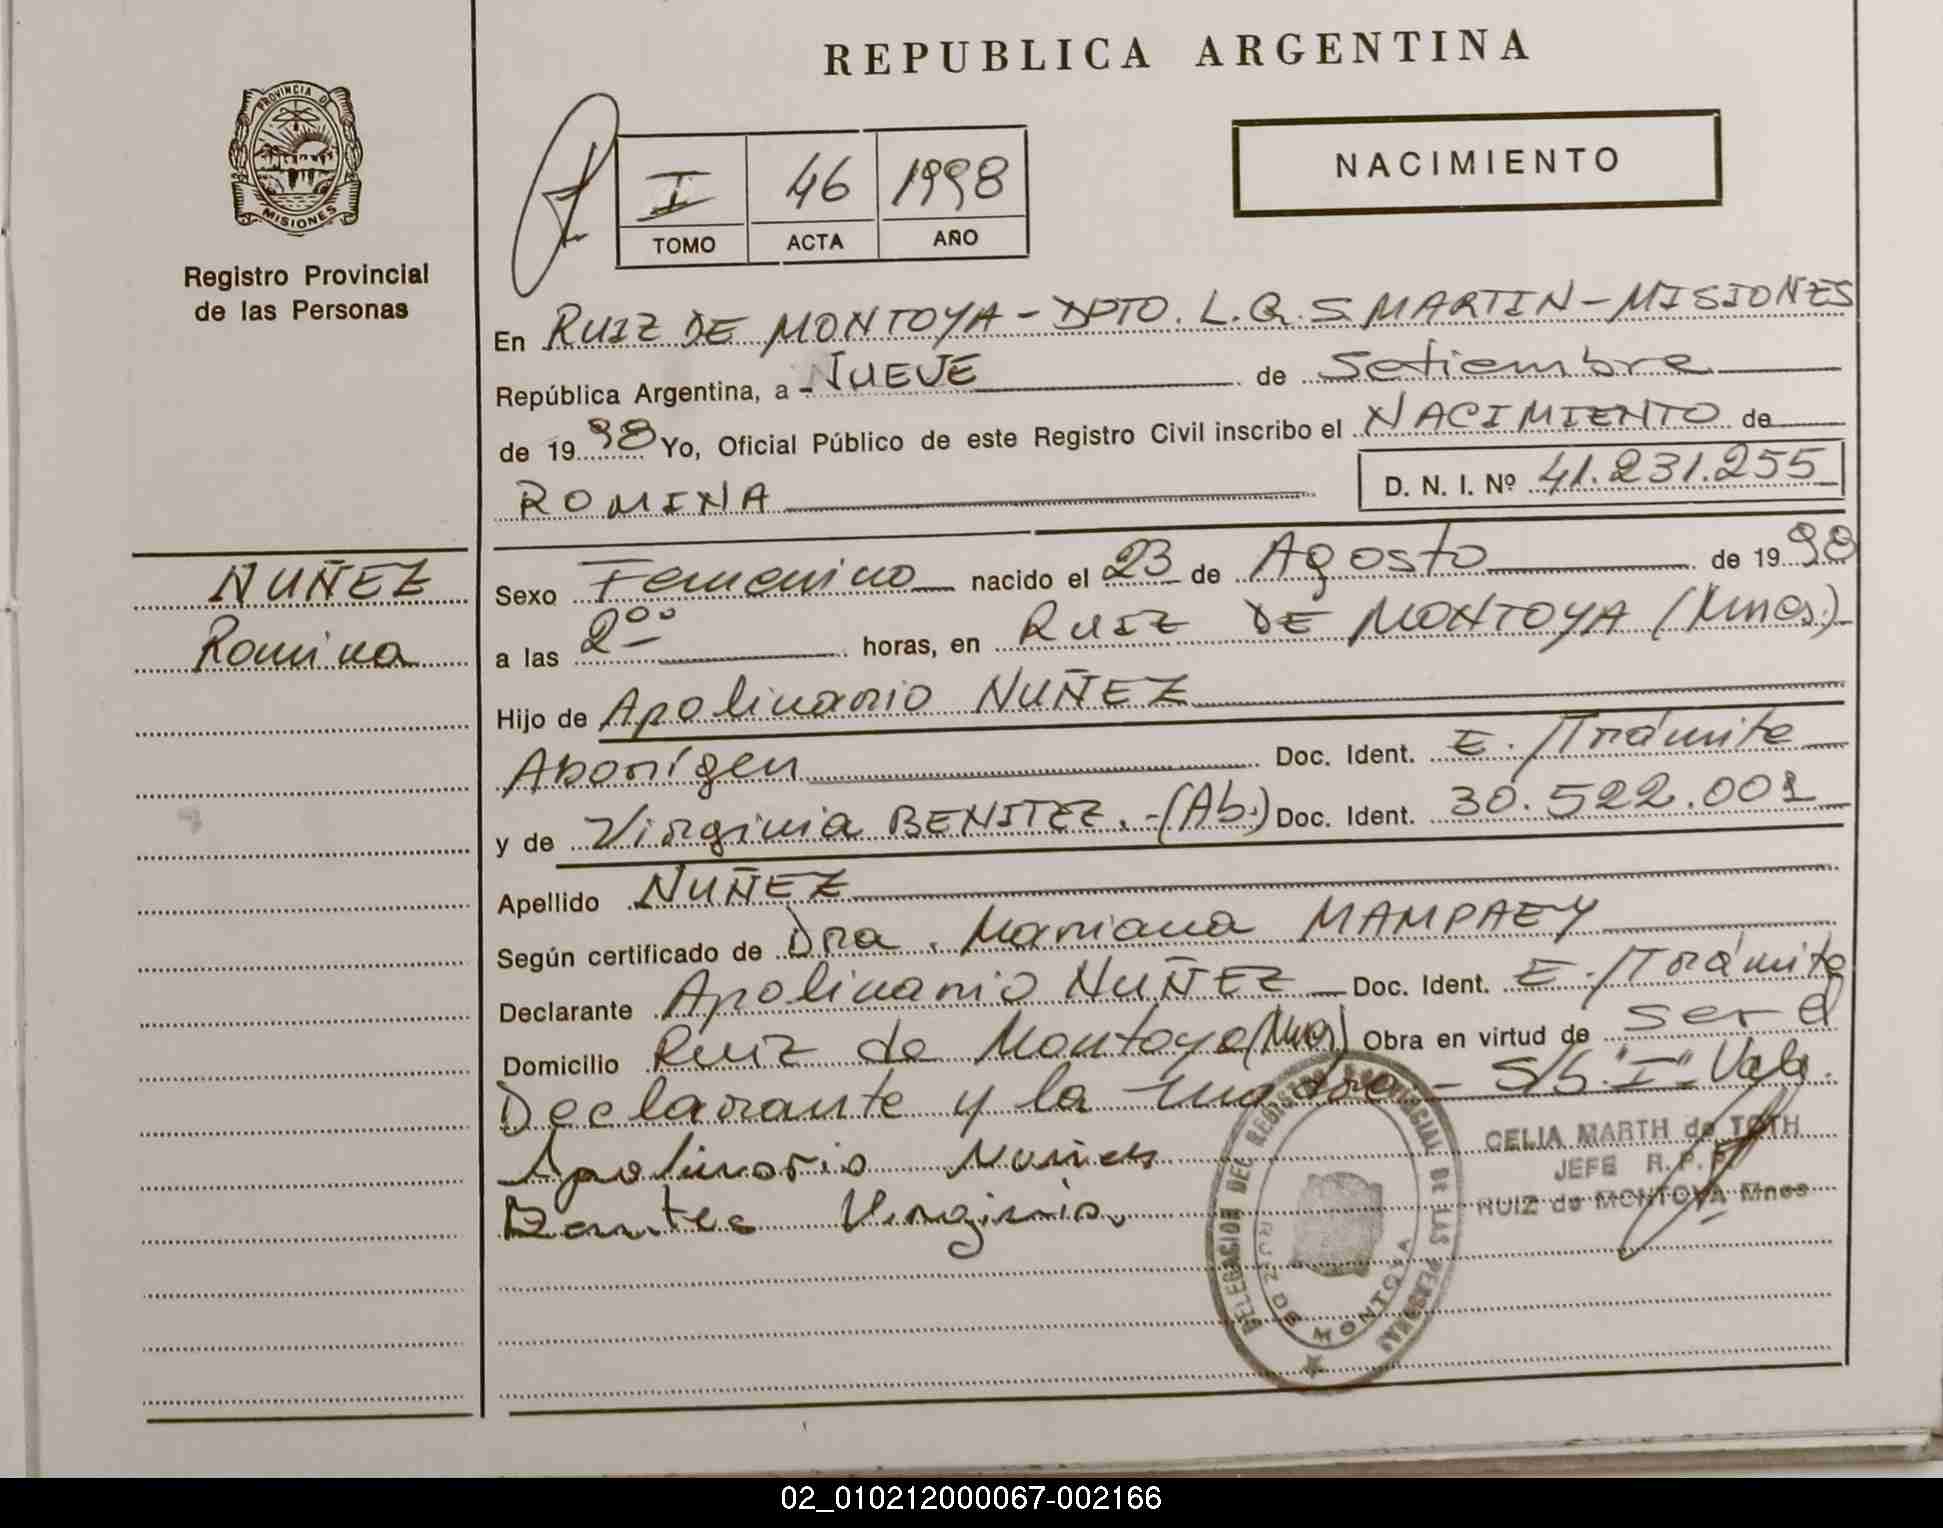 REPUBLICA ARGENTINA
PROVINCIA DE
MISIONES
Registro Provincial
de las Personas
I 46 1998
TOMO ACTA AÑO
NACIMIENTO
En RUIZ DE MONTOYA - DPTO. L. G. S. MARTIN - MISIONES
República Argentina, a - NUEVE de Setiembre
de 19 98 Yo, Oficial Público de este Registro Civil inscribo el NACIMIENTO de
ROMINA D. N. I. Nº 41.231.255
NUÑEZ
Romina
Sexo Femenino nacido el 23 de Agosto de 19 98
a las 2 00 horas, en RUIZ DE MONTOYA (Mnes.)
Hijo de Apolinario NUÑEZ
Aborígen Doc. Ident. E./Trámite
y de Virginia BENITEZ.-(Ab.) Doc. Ident. 30.522.001
Apellido NUÑEZ
Según certificado de Dra. Mariana MAMPAEY
Declarante Apolinario NUÑEZ Doc. Ident. E./Trámite
Domicilio Ruiz de Montoya Obra en virtud de ser el
Declarante y la madre.- S/S. "I" Vale.
Apolinario Nuñes
Benites Virginia.
CELIA MARTH de TOTH
JEFE R.P.P.
RUIZ de MONTOYA Mnes
DELEGACION DEL REGISTRO PROVINCIAL DE LAS PERSONAS
RUIZ DE MONTOYA
02_010212000067-002166